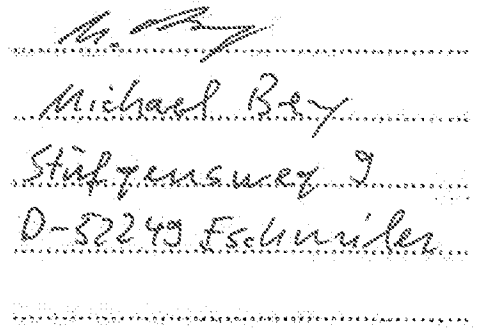 Michael Bey
Stüfgensweg 9
D-52249 Eschweiler